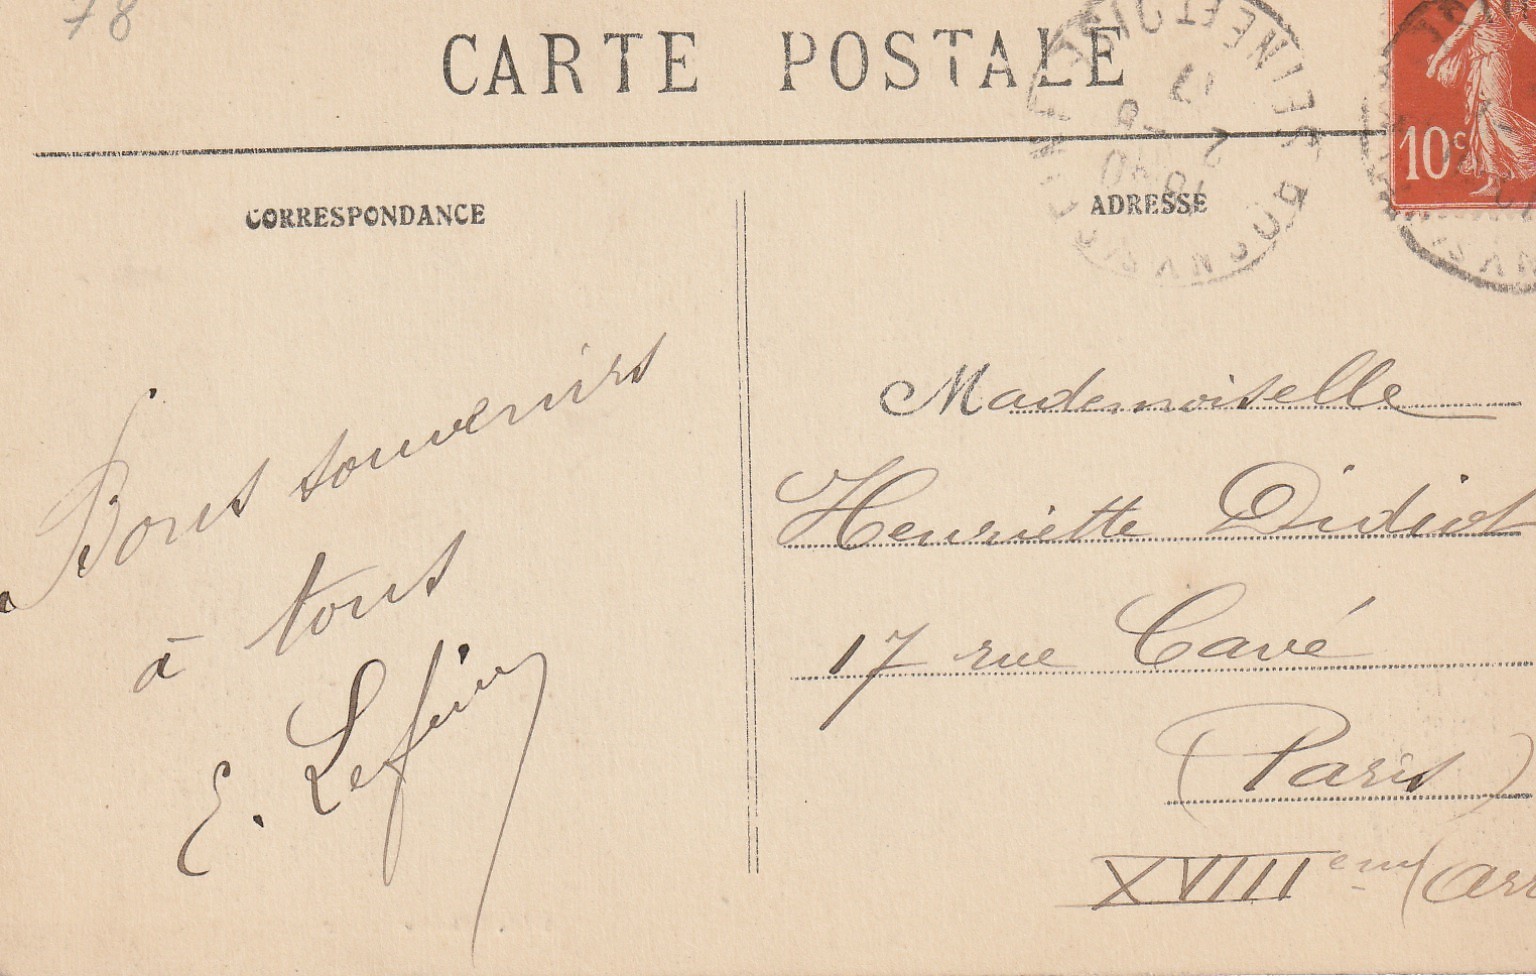 78
CARTE POSTALE
CORRESPONDANCE
ADRESSE
10c
SEINE ET OISE
Bons souvenirs
à tous
E.
Mademoiselle
Henriette Didiot
17 rue Cavé
(Paris)
XVIIIeme (arr